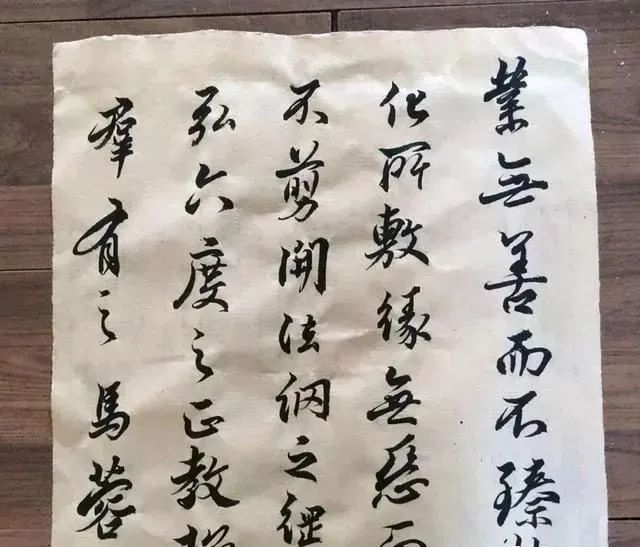 業無善而不臻
化所敷緣無惡而
不剪開法網之
弘六度之正教拯
羣有之馬蓉